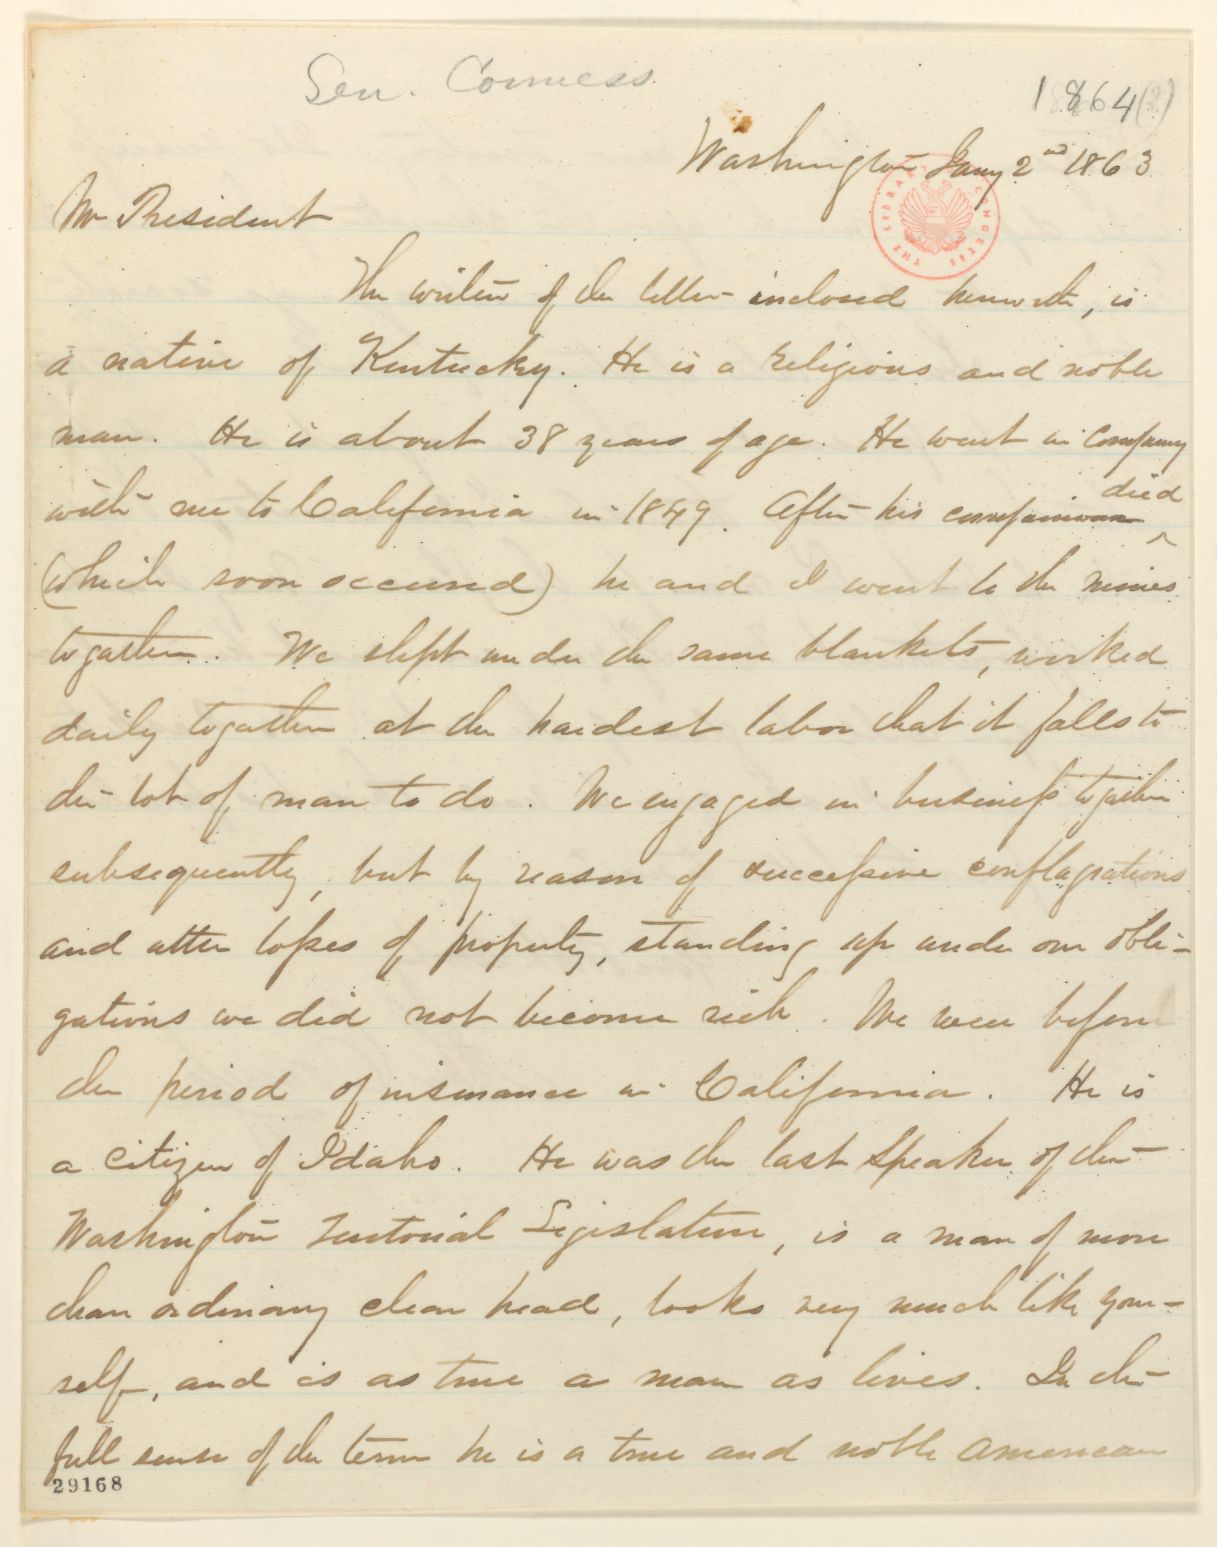 Sen. Conness
1864(?)
Washington Jany 2nd 1863
THE LIBRARY OF CONGRESS
Mr President
The writer of the letter inclosed herewith, is
a native of Kentucky. He is a religious and noble
man. He is about 38 years of age. He went in company
with me to California in 1849. After his companions died
(which soon occured) he and I went to the mines
together. We slept under the same blankets, worked
daily together at the hardest labor that it falls to
the lot of man to do. We engaged in business together
subsequently, but by reason of successive conflagrations
and utter losses of property, standing up under our obli-
gations we did not become rich. We were before
the period of insurance in California. He is
a citizen of Idaho. He was the last Speaker of the
Washington Territorial Legislature, is a man of more
than ordinary clear head, looks very much like your-
self, and is as true a man as lives. In the
full sense of the term he is a true and noble American
29168